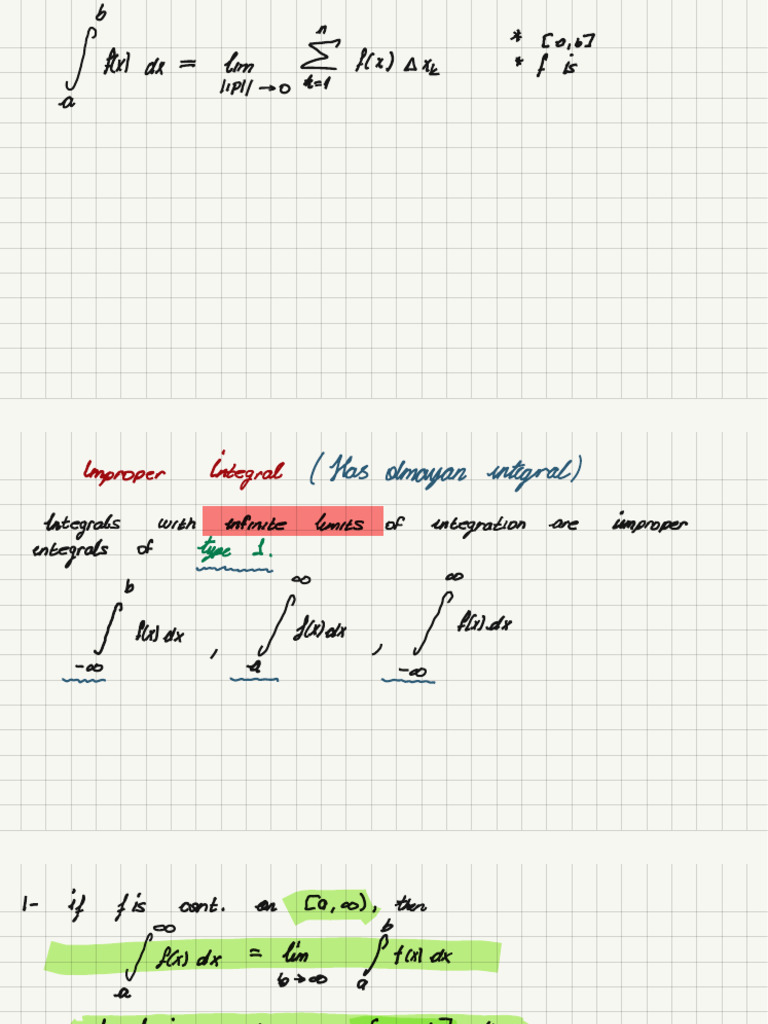 ∫_a^b f(x) dx = lim_{||P||→0} Σ_{k=1}^n f(x) Δx_k * [a,b]
* f is
Improper Integral (Has olmayan integral)
Integrals with infinite limits of integration are improper
integrals of type 1.
∫_{-∞}^b f(x) dx , ∫_a^∞ f(x) dx , ∫_{-∞}^∞ f(x) dx
1- if f is cont. on [a,∞), then
∫_a^∞ f(x) dx = lim_{b→∞} ∫_a^b f(x) dx